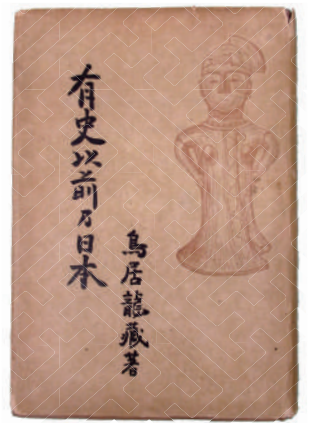 有史以前乃日本
鳥居龍藏著